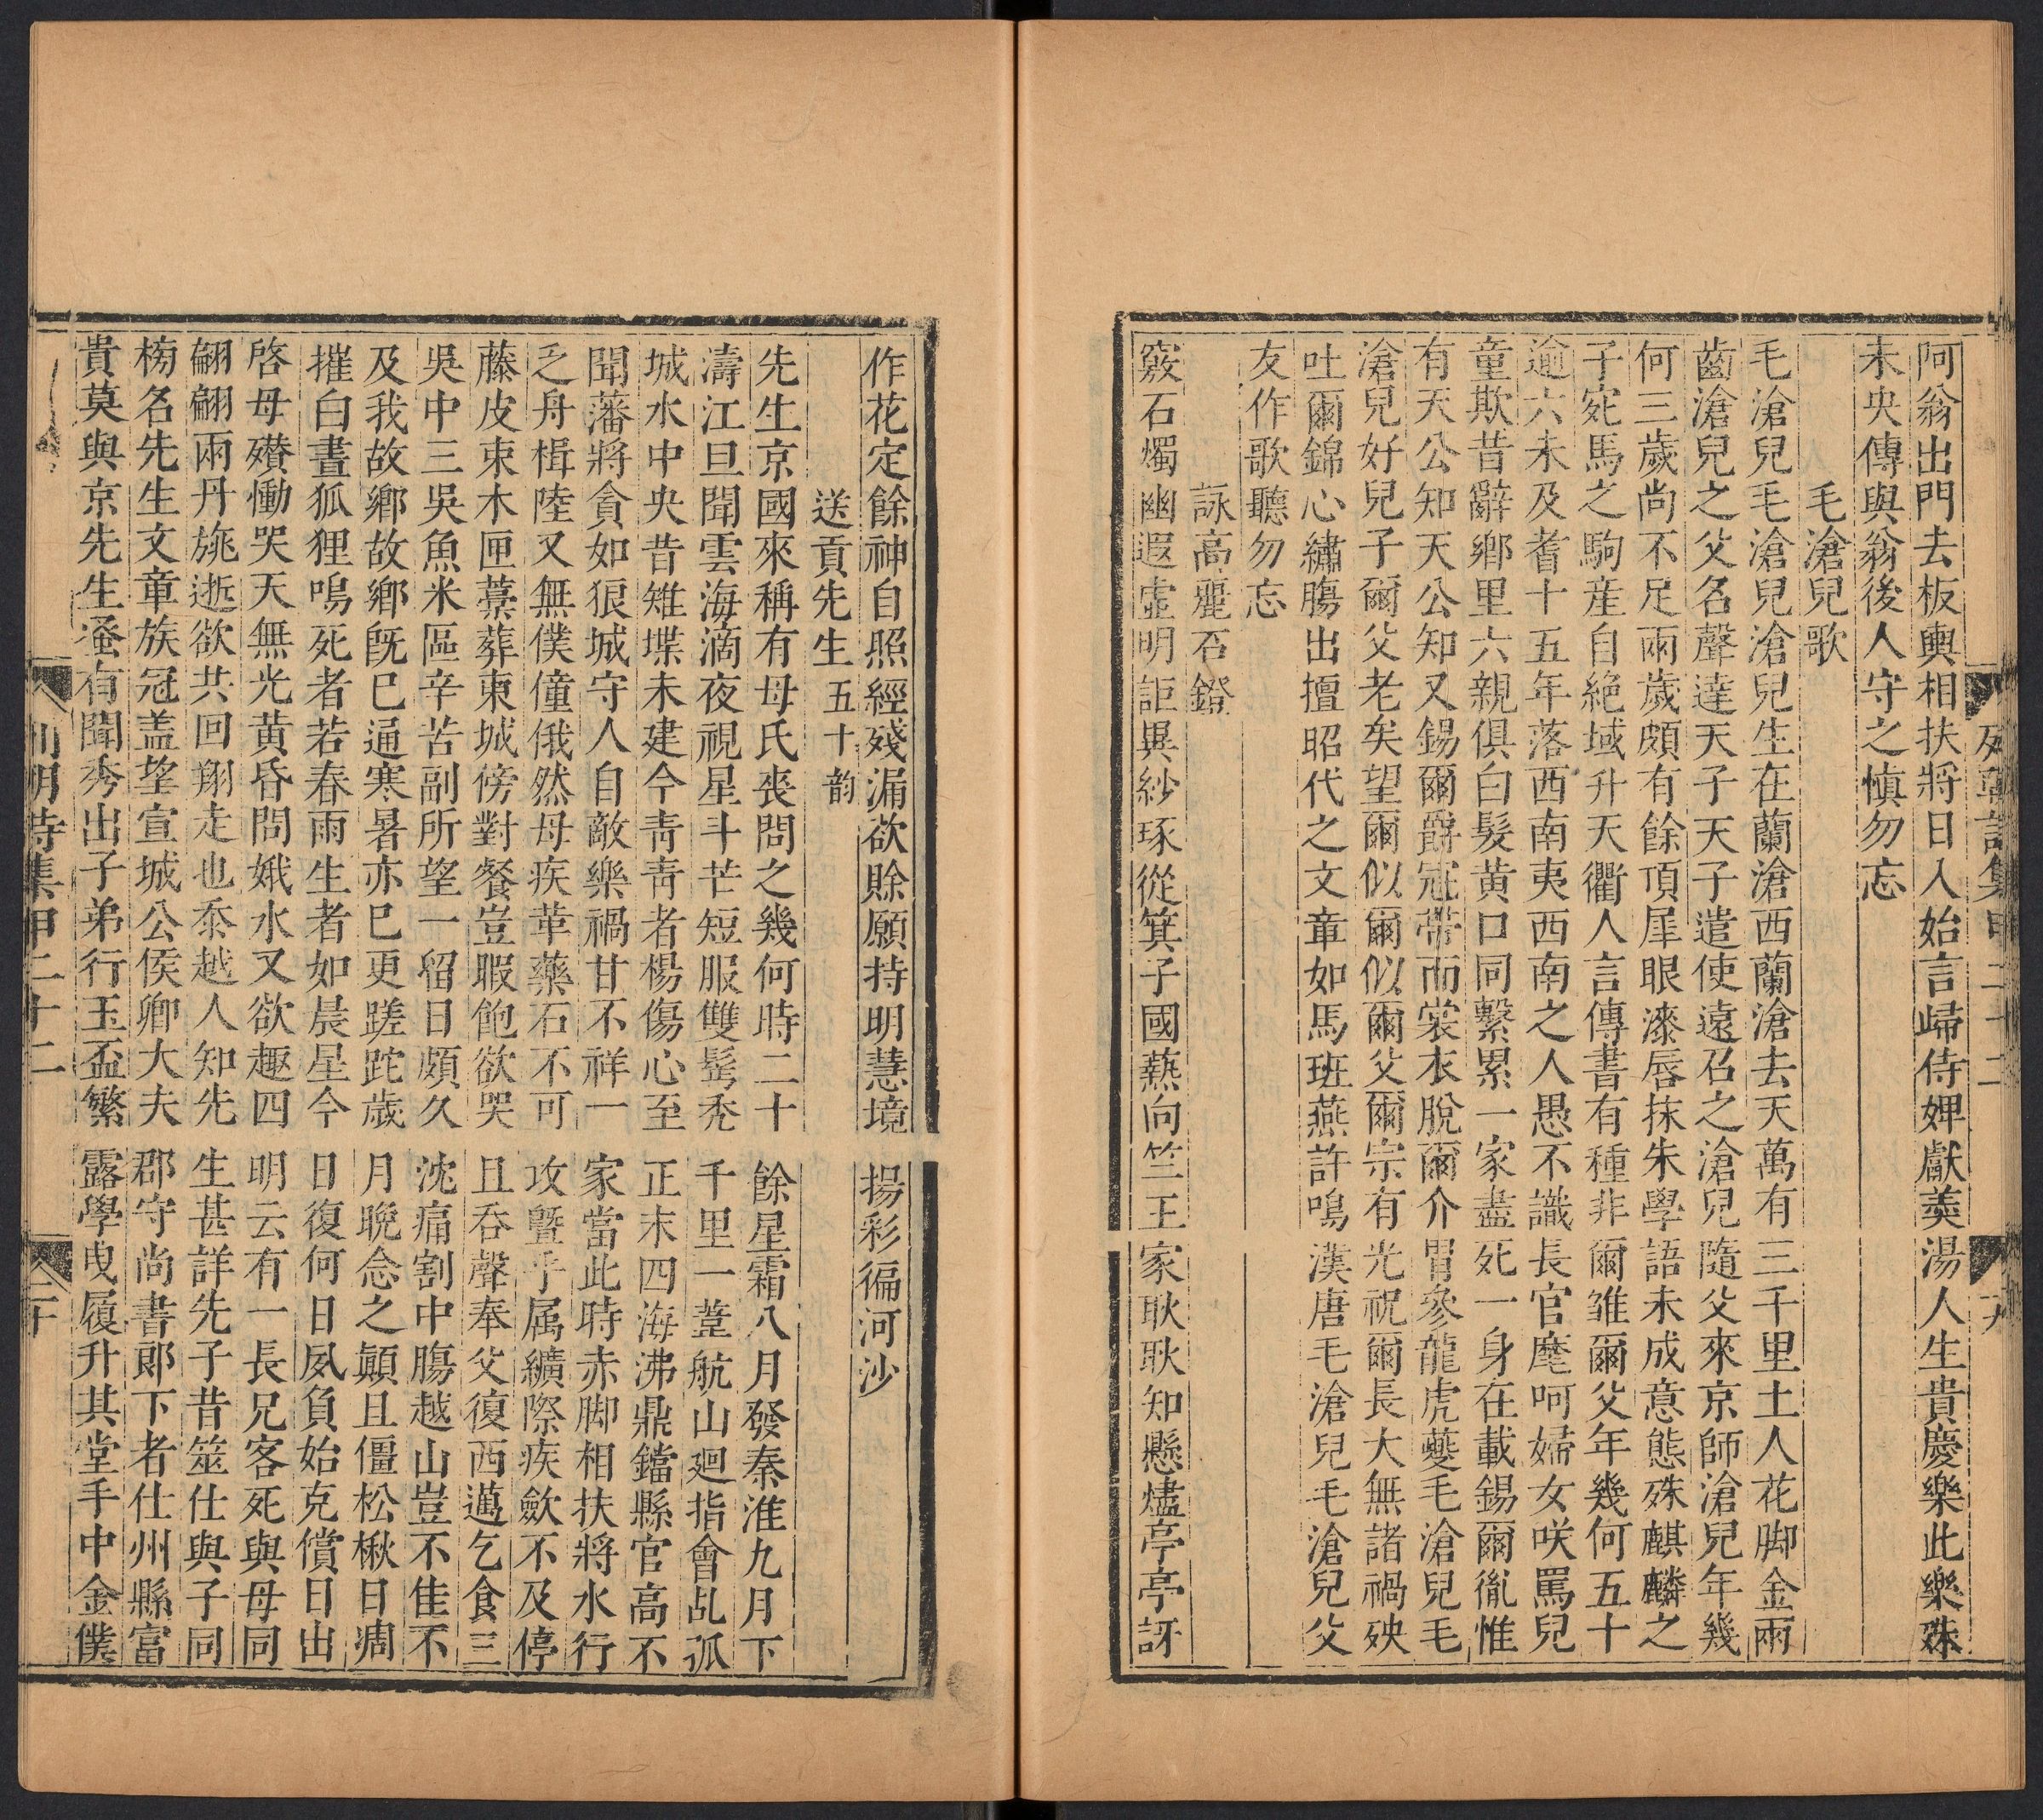 列朝詩集甲二十二 十九
阿翁出門去板輿相扶將日入始言歸侍婢獻羹湯人生貴慶樂此樂殊
未央傳與翁後人守之慎勿忘
毛滄兒歌
毛滄兒毛滄兒滄兒生在蘭滄西蘭滄去天萬有三千里土人花脚金兩
齒滄兒之父名聲達天子天子遣使遠召之滄兒隨父來京師滄兒年幾
何三歲尚不足兩歲頗有餘頂犀眼漆唇抹朱學語未成意態殊麒麟之
子宛馬之駒産自絶域升天衢人言傳書有種非爾雏爾父年幾何五十
逾六未及耆十五年落西南夷西南之人愚不識長官麾呵婦女咲罵兒
童欺昔辭鄉里六親俱白髮黄口同繫累一家盡死一身在載錫爾胤惟
有天公知天公知又錫爾爵冠帶而裳衣脫爾介胃參龍虎夔毛滄兒毛
滄兒好兒子爾父老矣望爾似爾似爾父爾宗有光祝爾長大無諸禍殃
吐爾錦心繡膓出擅昭代之文章如馬班燕許鳴漢唐毛滄兒毛滄兒父
友作歌聽勿忘
詠高麗石鐙
竅石燭幽遐虛明詎異紗琢從箕子國爇向竺王家耿耿知懸燼亭亭訝
作花定餘神自照經殘漏欲賖願持明慧境揚彩徧河沙
送貢先生五十韵
先生京國來稱有母氏喪問之幾何時二十餘星霜八月發秦淮九月下
濤江旦聞雲海滴夜視星斗芒短服雙髩秃千里一葦航山廻指會乩孤
城水中央昔雉堞未建今靑靑者楊傷心至正末四海沸鼎鐺縣官高不
聞藩將貪如狼城守人自敵樂禍甘不祥一家當此時赤脚相扶將水行
乏舟楫陸又無僕僮俄然母疾革藥石不可攻曁乎属纊際疾歛不及停
藤皮束木匣藁葬東城傍對餐豈暇飽欲哭且吞聲奉父復西邁乞食三
吳中三吳魚米區辛苦副所望一留日頗久沈痛割中膓越山豈不佳不
及我故鄉故鄉旣已通寒暑亦已更蹉跎歲月晩念之顚且僵松楸日凋
摧白晝狐狸鳴死者若春雨生者如晨星今日復何日夙負始克償日出
啓母殯慟哭天無光黄昏問娥水又欲趣四明云有一長兄客死與母同
翩翩兩丹旐逝欲共回翔走也忝越人知先生甚詳先子昔筮仕與子同
榜名先生文章族冠盖望宣城公侯卿大夫郡守尚書郞下者仕州縣富
貴莫與京先生蚤有聞秀出子弟行玉盃繁露學曳履升其堂手中金僕
列朝詩集甲二十二 二十